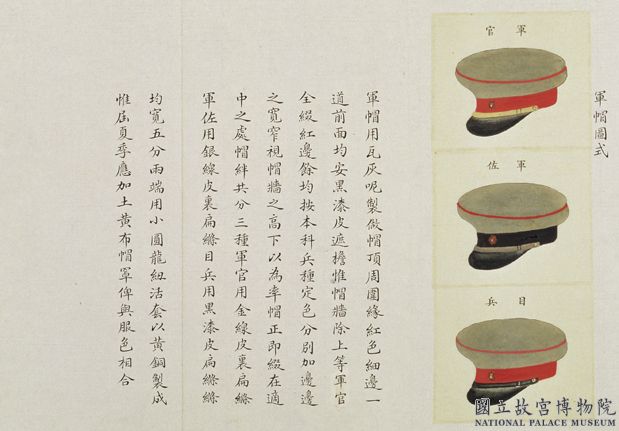 軍帽圖式
軍官
軍佐
目兵
軍帽用瓦灰呢製做帽頂周圍緣紅色細邊一
道前面均安黑漆皮遮簷惟帽牆除上等軍官
全綴紅邊餘均按本科兵種定色分別加邊邊
之寬窄視帽牆之高下以為率帽正即綴在適
中之處帽絆共分三種軍官用金線皮裏扁縧
軍佐用銀線皮裏扁縧目兵用黑漆皮扁縧縧
均寬五分兩端用小圓龍紐活套以黃銅製成
惟屆夏季應加土黃布帽罩俾與服色相合
國立故宮博物院
NATIONAL PALACE MUSEUM